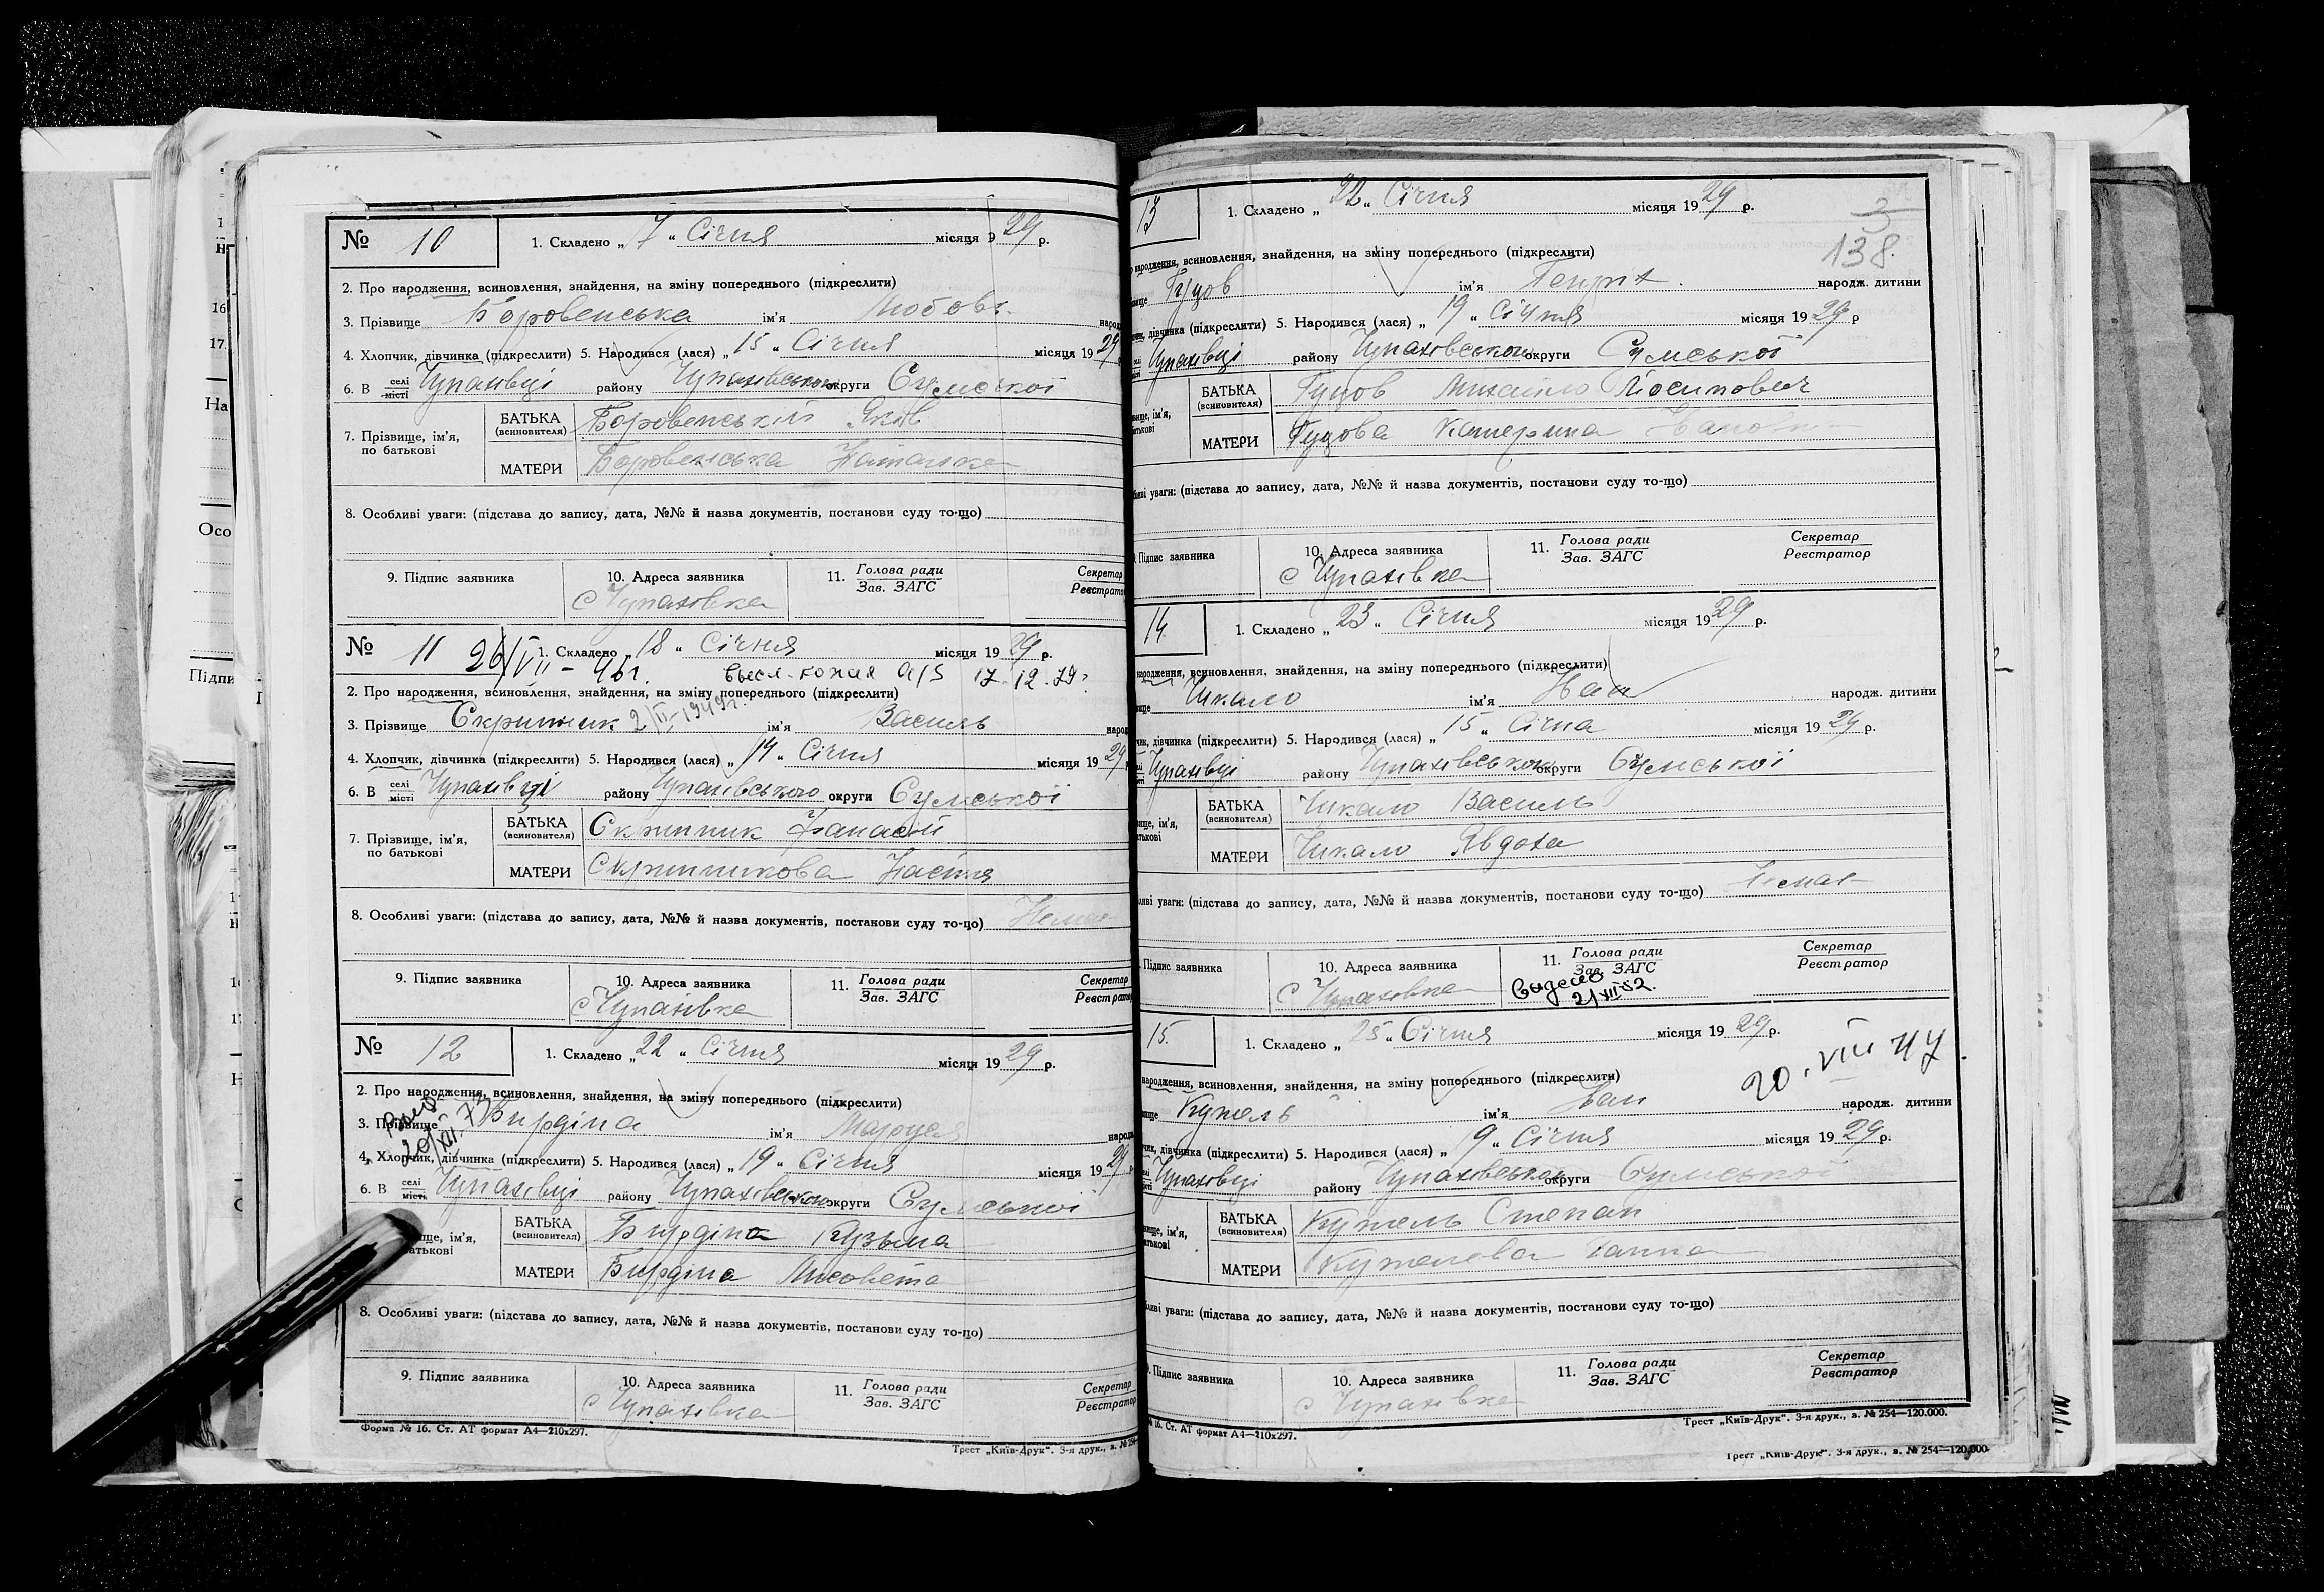 № 10 1. Складено „7“ Січня місяця 1929 р.
2. Про народження, всиновлення, знайдення, на зміну попереднього (підкреслити)
3. Прізвище Боровенська ім'я Любовь народ
4. Хлопчик, дівчинка (підкреслити) 5. Народився (лася) „15“ Січня місяця 1929
6. В селі місті Чупахівці району Чупахівського округи Сумської
7. Прізвище, ім'я, по батькові
БАТЬКА (всиновителя) Боровенський Яків
МАТЕРИ Боровенська Наталка
8. Особливі уваги: (підстава до запису, дата, №№ й назва документів, постанови суду то-що)
9. Підпис заявника 10. Адреса заявника 11. Голова ради Зав. ЗАГС Секретар Реєстратор
с Чупахівка
№ 11 1. Складено „18“ Січня місяця 1929 р.
26/VII – 46г. 17.12.79г
2. Про народження, всиновлення, знайдення, на зміну попереднього (підкреслити)
3. Прізвище Скрипник 2/II-1949г. ім'я Василь народ
4. Хлопчик, дівчинка (підкреслити) 5. Народився (лася) „14“ Січня місяця 1929
6. В селі місті Чупахівці району Чупахівського округи Сумської
7. Прізвище, ім'я, по батькові
БАТЬКА (всиновителя) Скрипник Панасій
МАТЕРИ Скрипникова Настя
8. Особливі уваги: (підстава до запису, дата, №№ й назва документів, постанови суду то-що) Немає
9. Підпис заявника 10. Адреса заявника 11. Голова ради Зав. ЗАГС Секретар Реєстратор
с Чупахівка
№ 12 1. Складено „22“ Січня місяця 1929 р.
2. Про народження, всиновлення, знайдення, на зміну попереднього (підкреслити)
3. Прізвище Бирдіна ім'я Маруся народ
4. Хлопчик, дівчинка (підкреслити) 5. Народився (лася) „19“ Січня місяця 1929
6. В селі місті Чупахівці району Чупахівського округи Сумської
ще, ім'я, атькові
БАТЬКА (всиновителя) Бирдіна Кузьма
МАТЕРИ Бирдіна Лисовета
8. Особливі уваги: (підстава до запису, дата, №№ й назва документів, постанови суду то-що)
9. Підпис заявника 10. Адреса заявника 11. Голова ради Зав. ЗАГС Секретар Реєстратор
с Чупахівка
Форма № 16. Ст. АТ формат А4—210х297.
Трест „Київ-Друк“. 3-я друк., з. № 254
13 1. Складено „22“ Січня місяця 1929 р.
138.
народження, всиновлення, знайдення, на зміну попереднього (підкреслити)
Гуцов ім'я Генріх народж. дитини
дівчинка (підкреслити) 5. Народився (лася) „19“ Січня місяця 1929 р
Чупахівці району Чупахівського округи Сумської
БАТЬКА (всиновителя) Гуцов Михайло Йосипович
МАТЕРИ Гуцова Катерина
уваги: (підстава до запису, дата, №№ й назва документів, постанови суду то-що)
Підпис заявника 10. Адреса заявника 11. Голова ради Зав. ЗАГС Секретар Реєстратор
с Чупахівка
14 1. Складено „23“ Січня місяця 1929 р.
народження, всиновлення, знайдення, на зміну попереднього (підкреслити)
Чикало ім'я Иван народж. дитини
дівчинка (підкреслити) 5. Народився (лася) „15“ Січна місяця 1929 р.
Чупахівці району Чупахівського округи Сумської
БАТЬКА (всиновителя) Чикало Василь
МАТЕРИ Чикало Явдоха
уваги: (підстава до запису, дата, №№ й назва документів, постанови суду то-що) Немає
Підпис заявника 10. Адреса заявника 11. Голова ради Зав. ЗАГС Секретар Реєстратор
с Чупахівка
2/XII 52.
15. 1. Складено „25“ Січня місяця 1929 р.
20.VIII 47
народження, всиновлення, знайдення, на зміну попереднього (підкреслити)
Кужель ім'я Иван народж. дитини
дівчинка (підкреслити) 5. Народився (лася) „9“ Січня місяця 1929 р.
Чупахівці району Чупахівського округи Сумської
БАТЬКА (всиновителя) Кужель Степан
МАТЕРИ Кужелева Ганна
уваги: (підстава до запису, дата, №№ й назва документів, постанови суду то-що)
Підпис заявника 10. Адреса заявника 11. Голова ради Зав. ЗАГС Секретар Реєстратор
с Чупахівка
16. Ст. АТ формат А4—210х297.
Трест „Київ-Друк“. 3-я друк., з. № 254—120.000.
Трест „Київ-Друк“. 3-я друк., з. № 254—120.000.